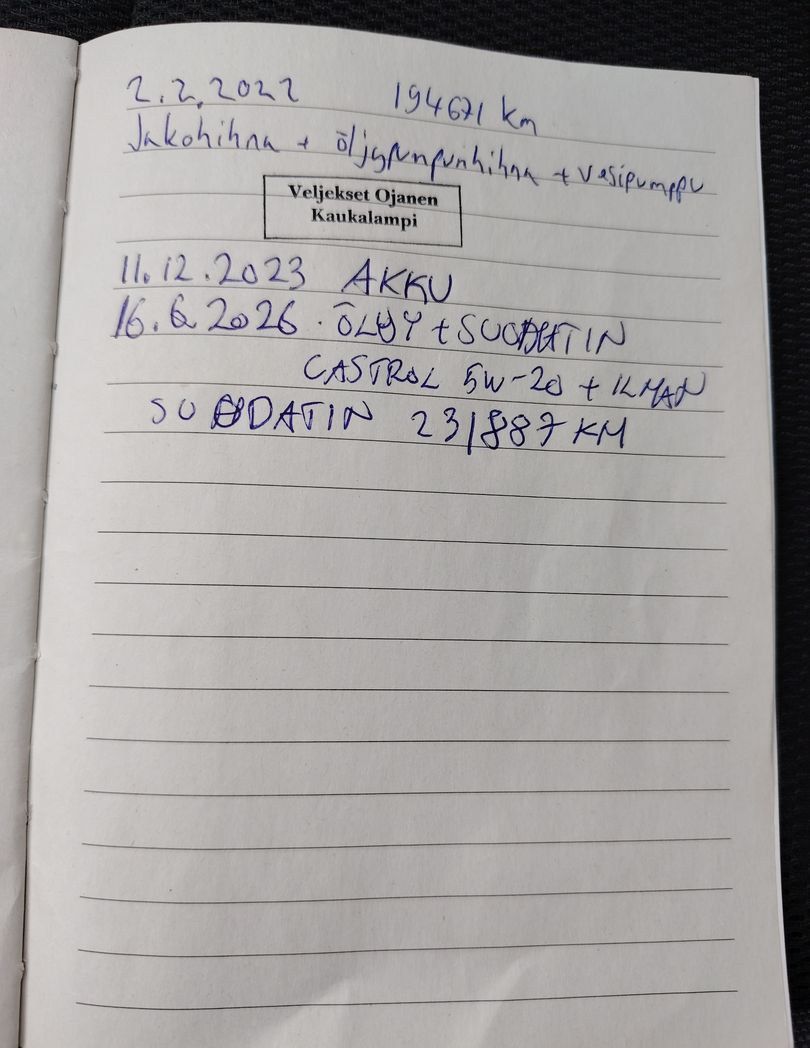 2.2.2022 194671 km
Jakohihna + öljypumpunhihna + vesipumppu
Veljekset Ojanen
Kaukalampi
11.12.2023 AKKU
16.6.2026. ÖLJY + SUODATIN
CASTROL 5W-20 + ILMAN
SUODATIN 231887 KM